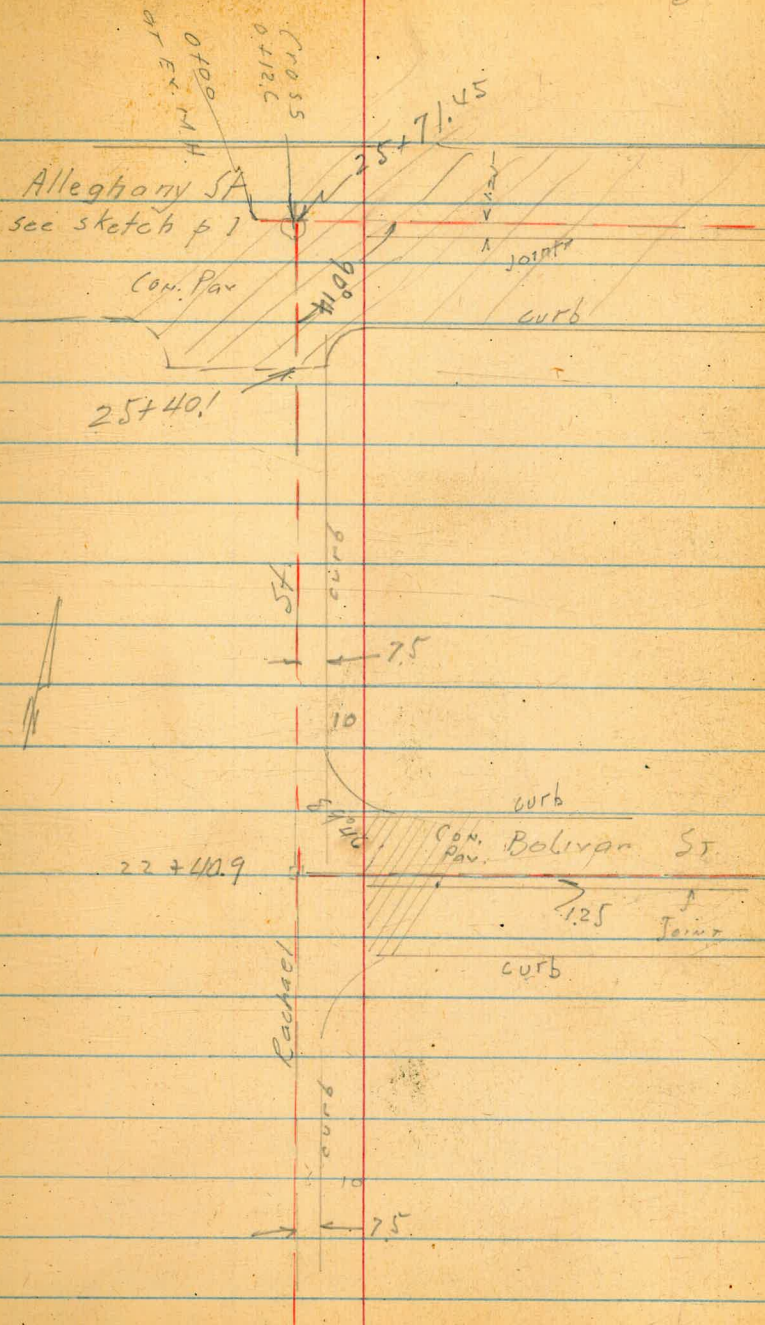 0+00
at Ex. M.H.
Cross
0+12.6
25+71.45
Alleghany St
see sketch p 1
1.25
Joint
90°14'
Con. Pav
curb
25+40.1
curb
St.
7.5
10
curb
Con.
Pav.
Bolivar St.
22+40.9
1.25
Joint
curb
Rachael
curb
10
7.5